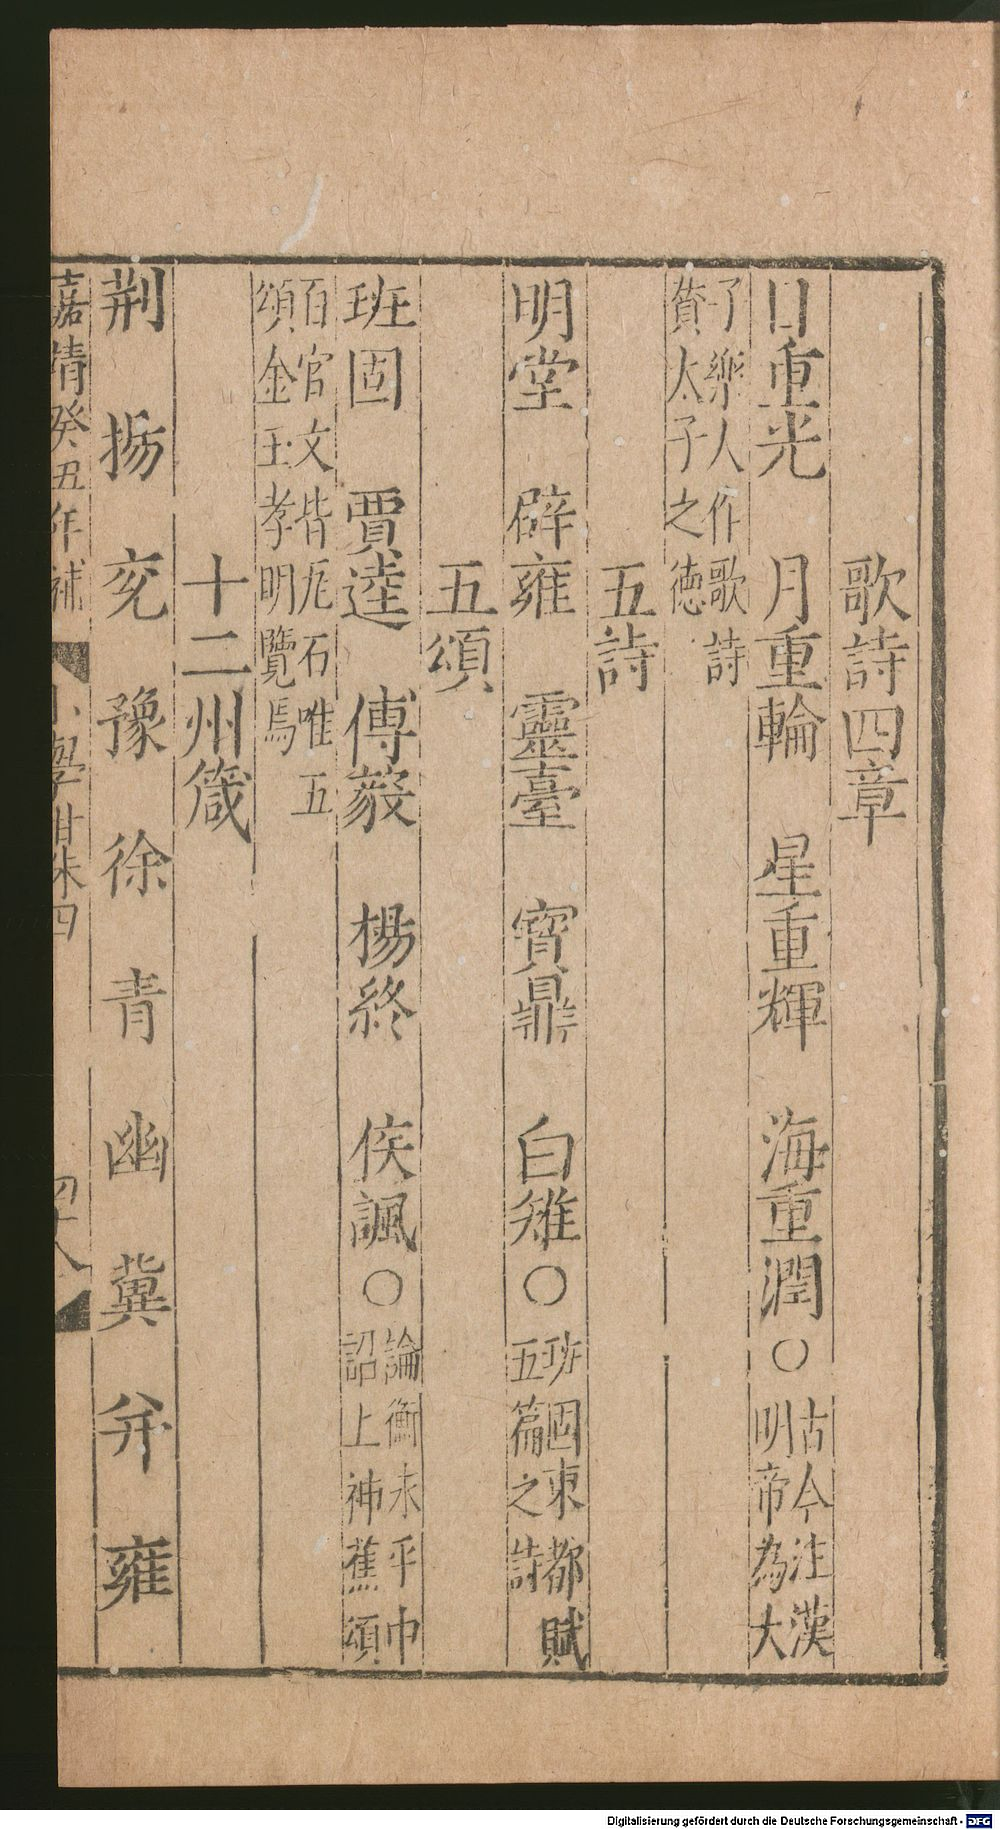 歌詩四章
日重光　月重輪　星重輝　海重潤○古今注漢
明帝為太
子樂人作歌詩
賛太子之德
五詩
明堂　辟雍　靈臺　寳鼎　白雉○班固東都賦
五篇之詩
五頌
班固　賈逵　傅毅　楊終　侯諷○論衡永平中
詔上神雀頌
百官文皆瓦石唯五
頌金玉孝明覽焉
十二州箴
荆　揚　兖　豫　徐　青　幽　冀　并　雍
嘉靖癸丑年補　小學紺珠四　四十八
Digitalisierung gefördert durch die Deutsche Forschungsgemeinschaft - DFG